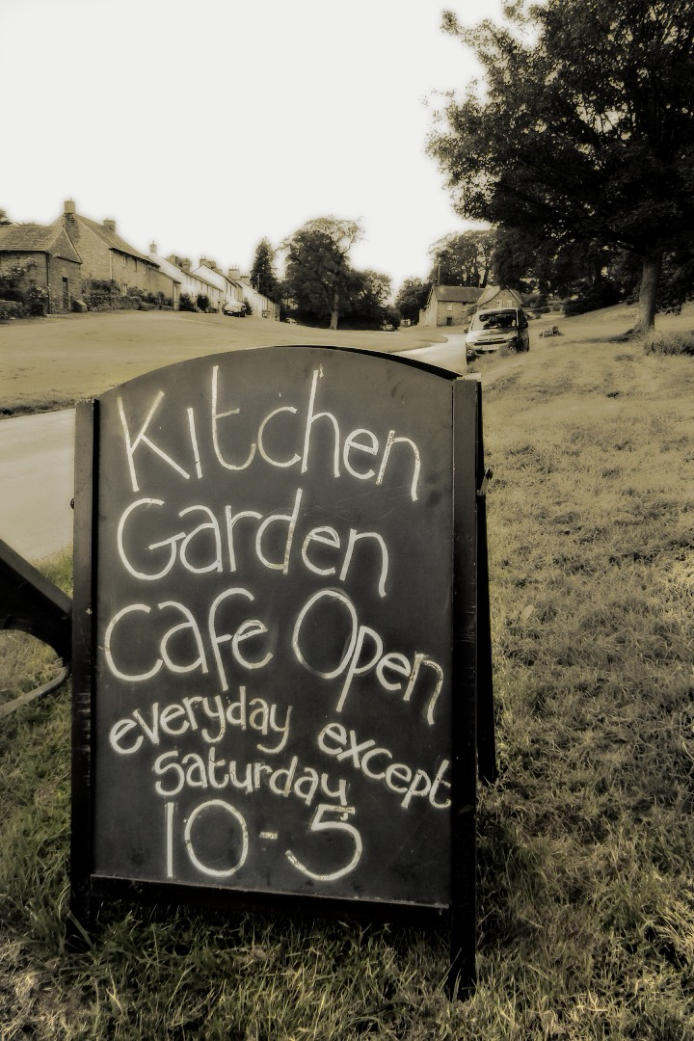 Kitchen
Garden
Cafe Open
everyday except
saturday
10-5